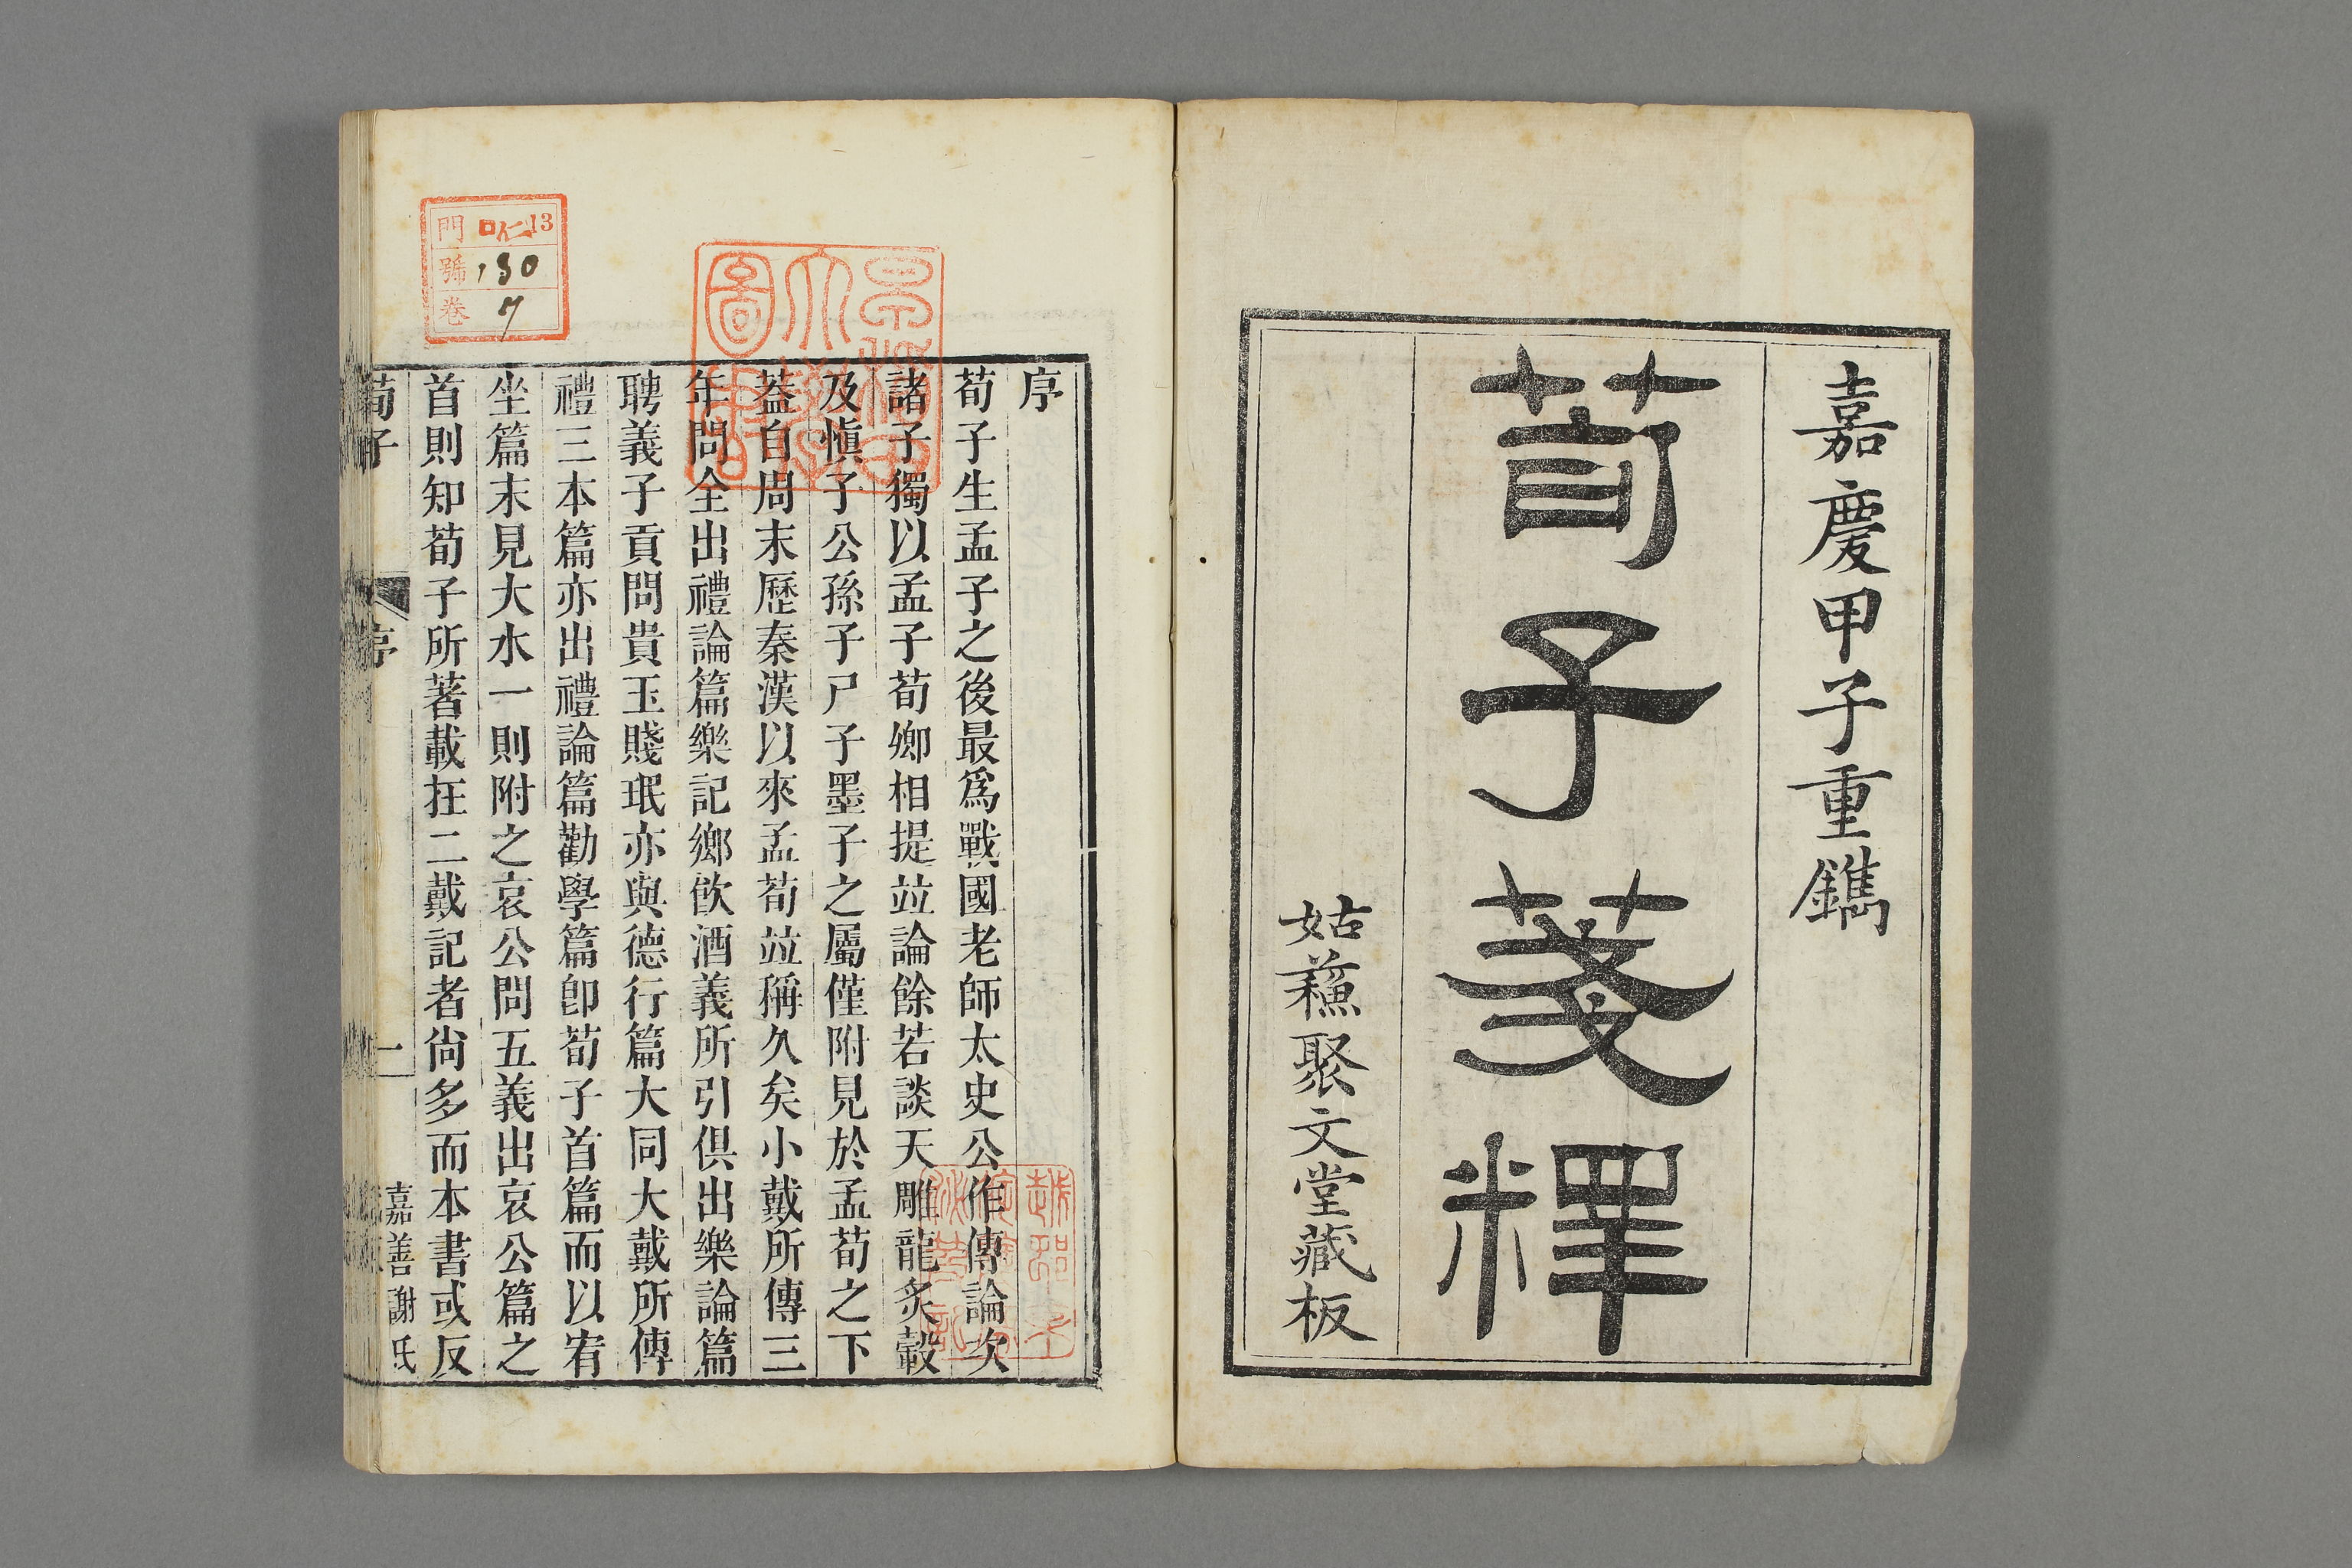 嘉慶甲子重鐫
荀子箋釋
姑蘓聚文堂藏板
序
荀子生孟子之後最爲戰國老師太史公作傳論次
諸子獨以孟子荀卿相提竝論餘若談天雕龍炙轂
及愼子公孫子尸子墨子之屬僅附見於孟荀之下
葢自周末歷秦漢以來孟荀竝稱久矣小戴所傳三
年問全出禮論篇樂記鄉飮酒義所引俱出樂論篇
聘義子貢問貴玉賤珉亦與德行篇大同大戴所傳
禮三本篇亦出禮論篇勸學篇卽荀子首篇而以宥
坐篇末見大水一則附之哀公問五義出哀公篇之
首則知荀子所著載在二戴記者尚多而本書或反
荀子
序
一
嘉善謝氏
門 ロ仁13
號 130
卷 7